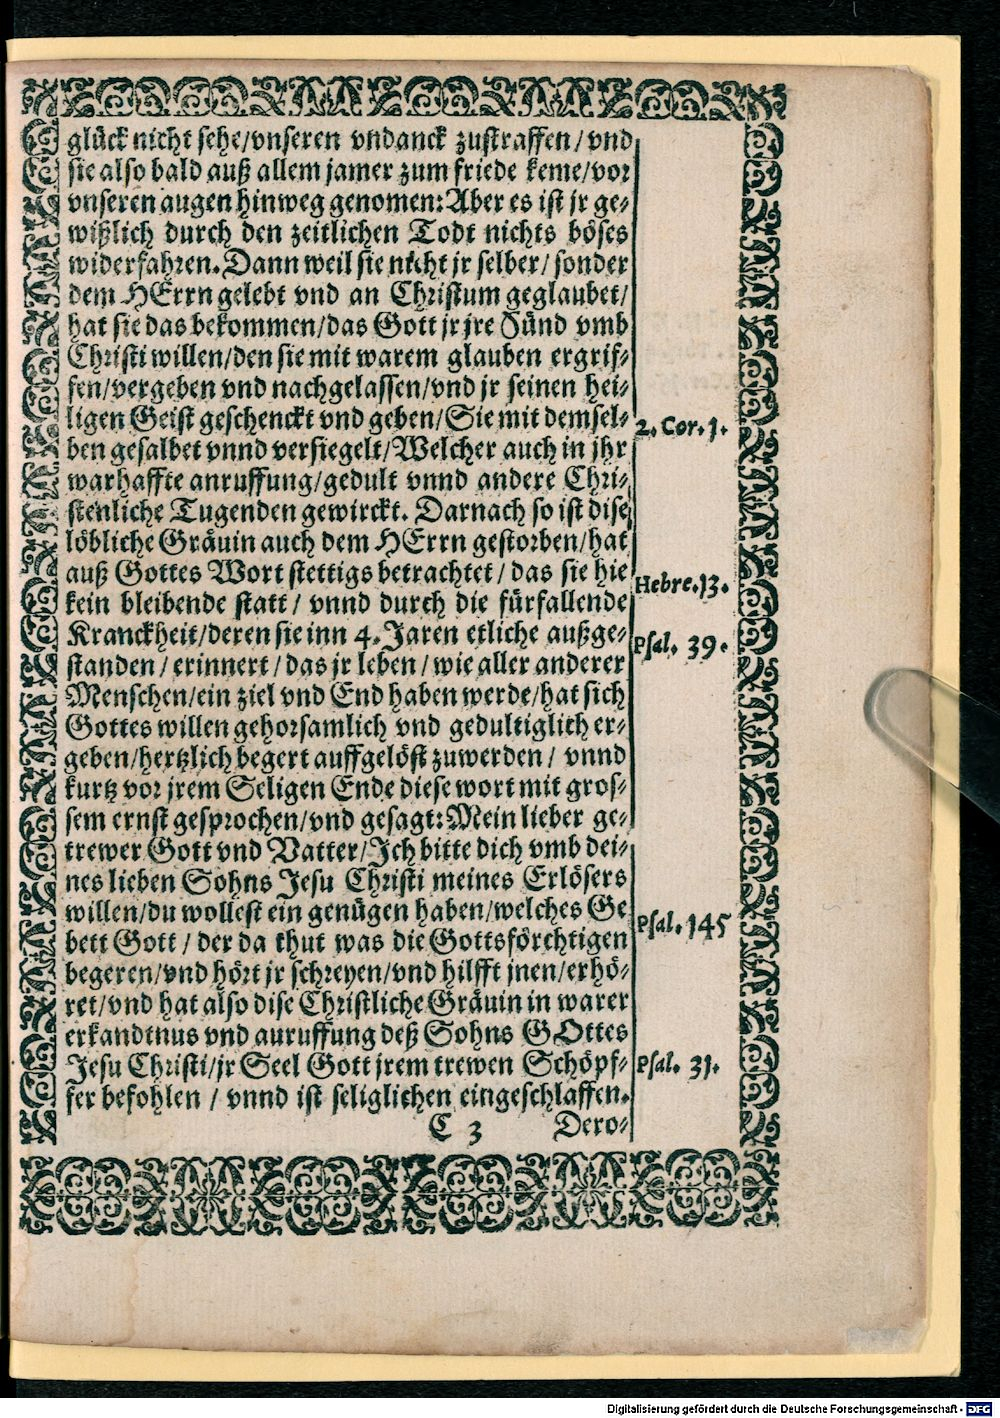 glück nicht sehe/vnseren vndanck zustraffen/vnd
sie also bald auß allem jamer zum friede keme/vor
vnseren augen hinweg genomen: Aber es ist jr ge-
wißlich durch den zeitlichen Todt nichts böses
widerfahren. Dann weil sie nicht jr selber/ sonder
dem HErrn gelebt vnd an Christum geglaubet/
hat sie das bekommen/das Gott jr jre Sünd vmb
Christi willen/den sie mit warem glauben ergrif-
fen/vergeben vnd nachgelassen/vnd jr seinen hei-
ligen Geist geschenckt vnd geben/Sie mit demsel-
2. Cor. 1.
ben gesalbet vnnd versiegelt/Welcher auch in jhr
warhaffte anruffung/gedult vnnd andere Chri-
stenliche Tugenden gewirckt. Darnach so ist dise
löbliche Gräuin auch dem HErrn gestorben/hat
auß Gottes Wort stettigs betrachtet/ das sie hie
Hebre. 13.
kein bleibende statt/ vnnd durch die fürfallende
Kranckheit/deren sie inn 4. Jaren etliche außge-
Psal. 39.
standen/ erinnert/das jr leben/ wie aller anderer
Menschen/ein ziel vnd End haben werde/hat sich
Gottes willen gehorsamlich vnd gedultiglich er-
geben/hertzlich begert auffgelöst zuwerden/ vnnd
kurtz vor jrem Seligen Ende diese wort mit gros-
sem ernst gesprochen/vnd gesagt: Mein lieber ge-
trewer Gott vnd Vatter/Ich bitte dich vmb dei-
nes lieben Sohns Jesu Christi meines Erlösers
willen/du wollest ein genügen haben/welches Ge
Psal. 145
bett Gott/ der da thut was die Gottsförchtigen
begeren/vnd hört jr schreyen/vnd hilfft jnen/erhö-
ret/vnd hat also dise Christliche Gräuin in warer
erkandtnus vnd auruffung deß Sohns GOttes
Jesu Christi/jr Seel Gott jrem trewen Schöpf-
Psal. 31.
fer befohlen/ vnnd ist seliglichen eingeschlaffen.
C 3 Dero-
Digitalisierung gefördert durch die Deutsche Forschungsgemeinschaft - DFG